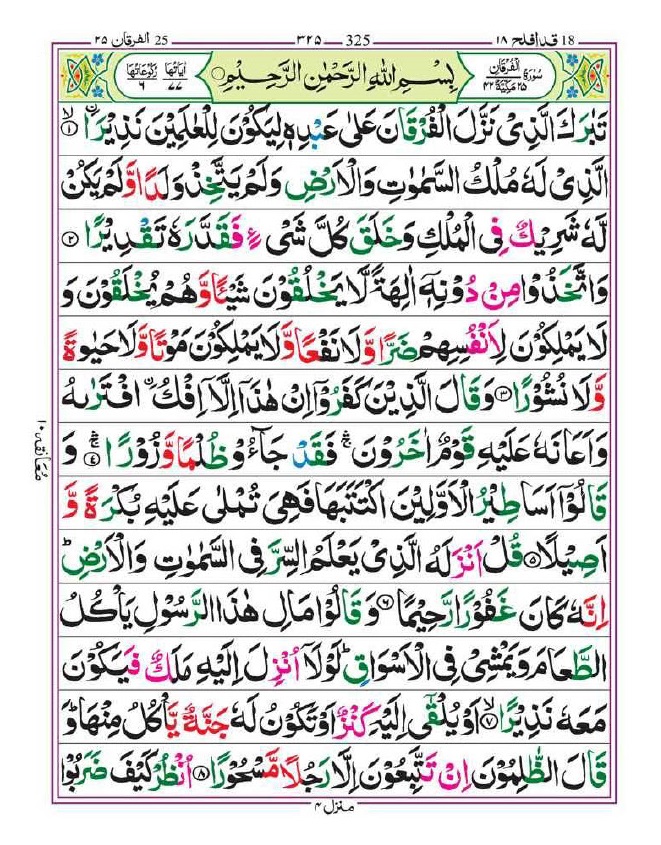 18 قدافلح ١٨ 325 ٣٢٥ 25 الفرقان ٢٥
سُوۡرَةُ الۡفُرۡقَانِ ٢٥ مَكِّيَّةٌ ٤٢ بِسۡمِ اللهِ الرَّحۡمٰنِ الرَّحِيۡمِ اٰيَاتُهَا ٧٧ رُكُوۡعَاتُهَا ٦
تَبٰرَكَ الَّذِىۡ نَزَّلَ الۡفُرۡقَانَ عَلٰى عَبۡدِهٖ لِيَكُوۡنَ لِلۡعٰلَمِيۡنَ نَذِيۡرَاۙ‏ ﴿١﴾
الَّذِىۡ لَهٗ مُلۡكُ السَّمٰوٰتِ وَالۡاَرۡضِ وَلَمۡ يَتَّخِذۡ وَلَدًا وَّلَمۡ يَكُنۡ
لَّهٗ شَرِيۡكٌ فِى الۡمُلۡكِ وَخَلَقَ كُلَّ شَىۡءٍ فَقَدَّرَهٗ تَقۡدِيۡرًا ﴿٢﴾
وَاتَّخَذُوۡا مِنۡ دُوۡنِهٖۤ اٰلِهَةً لَّا يَخۡلُقُوۡنَ شَيۡـًٔـا وَّهُمۡ يُخۡلَقُوۡنَ وَ
لَا يَمۡلِكُوۡنَ لِاَنۡفُسِهِمۡ ضَرًّا وَّلَا نَفۡعًا وَّلَا يَمۡلِكُوۡنَ مَوۡتًا وَّلَا حَيٰوةً
وَّلَا نُشُوۡرًا ﴿٣﴾ وَقَالَ الَّذِيۡنَ كَفَرُوۡۤا اِنۡ هٰذَاۤ اِلَّاۤ اِفۡكُ اۨفۡتَرٰٮهُ
وَاَعَانَهٗ عَلَيۡهِ قَوۡمٌ اٰخَرُوۡنَ ۛۚ فَقَدۡ جَآءُوۡ ظُلۡمًا وَّزُوۡرًا ۛۚ ﴿٤﴾ وَ
قَالُوۡۤا اَسَاطِيۡرُ الۡاَوَّلِيۡنَ اكۡتَتَبَهَا فَهِىَ تُمۡلٰى عَلَيۡهِ بُكۡرَةً وَّ
اَصِيۡلًا ﴿٥﴾ قُلۡ اَنۡزَلَهُ الَّذِىۡ يَعۡلَمُ السِّرَّ فِى السَّمٰوٰتِ وَالۡاَرۡضِ‌ؕ
اِنَّهٗ كَانَ غَفُوۡرًا رَّحِيۡمًا ﴿٦﴾ وَقَالُوۡا مَالِ هٰذَا الرَّسُوۡلِ يَاۡكُلُ
الطَّعَامَ وَيَمۡشِىۡ فِى الۡاَسۡوَاقِ‌ؕ لَوۡلَاۤ اُنۡزِلَ اِلَيۡهِ مَلَكٌ فَيَكُوۡنَ
مَعَهٗ نَذِيۡرًاۙ‏ ﴿٧﴾ اَوۡ يُلۡقٰٓى اِلَيۡهِ كَنۡزٌ اَوۡ تَكُوۡنُ لَهٗ جَنَّةٌ يَّاۡكُلُ مِنۡهَا‌ؕ وَ
قَالَ الظّٰلِمُوۡنَ اِنۡ تَتَّبِعُوۡنَ اِلَّا رَجُلًا مَّسۡحُوۡرًا ﴿٨﴾ اُنْظُرۡ كَيۡفَ ضَرَبُوۡا
مُعَانَقَه ١٠
منزل ٤